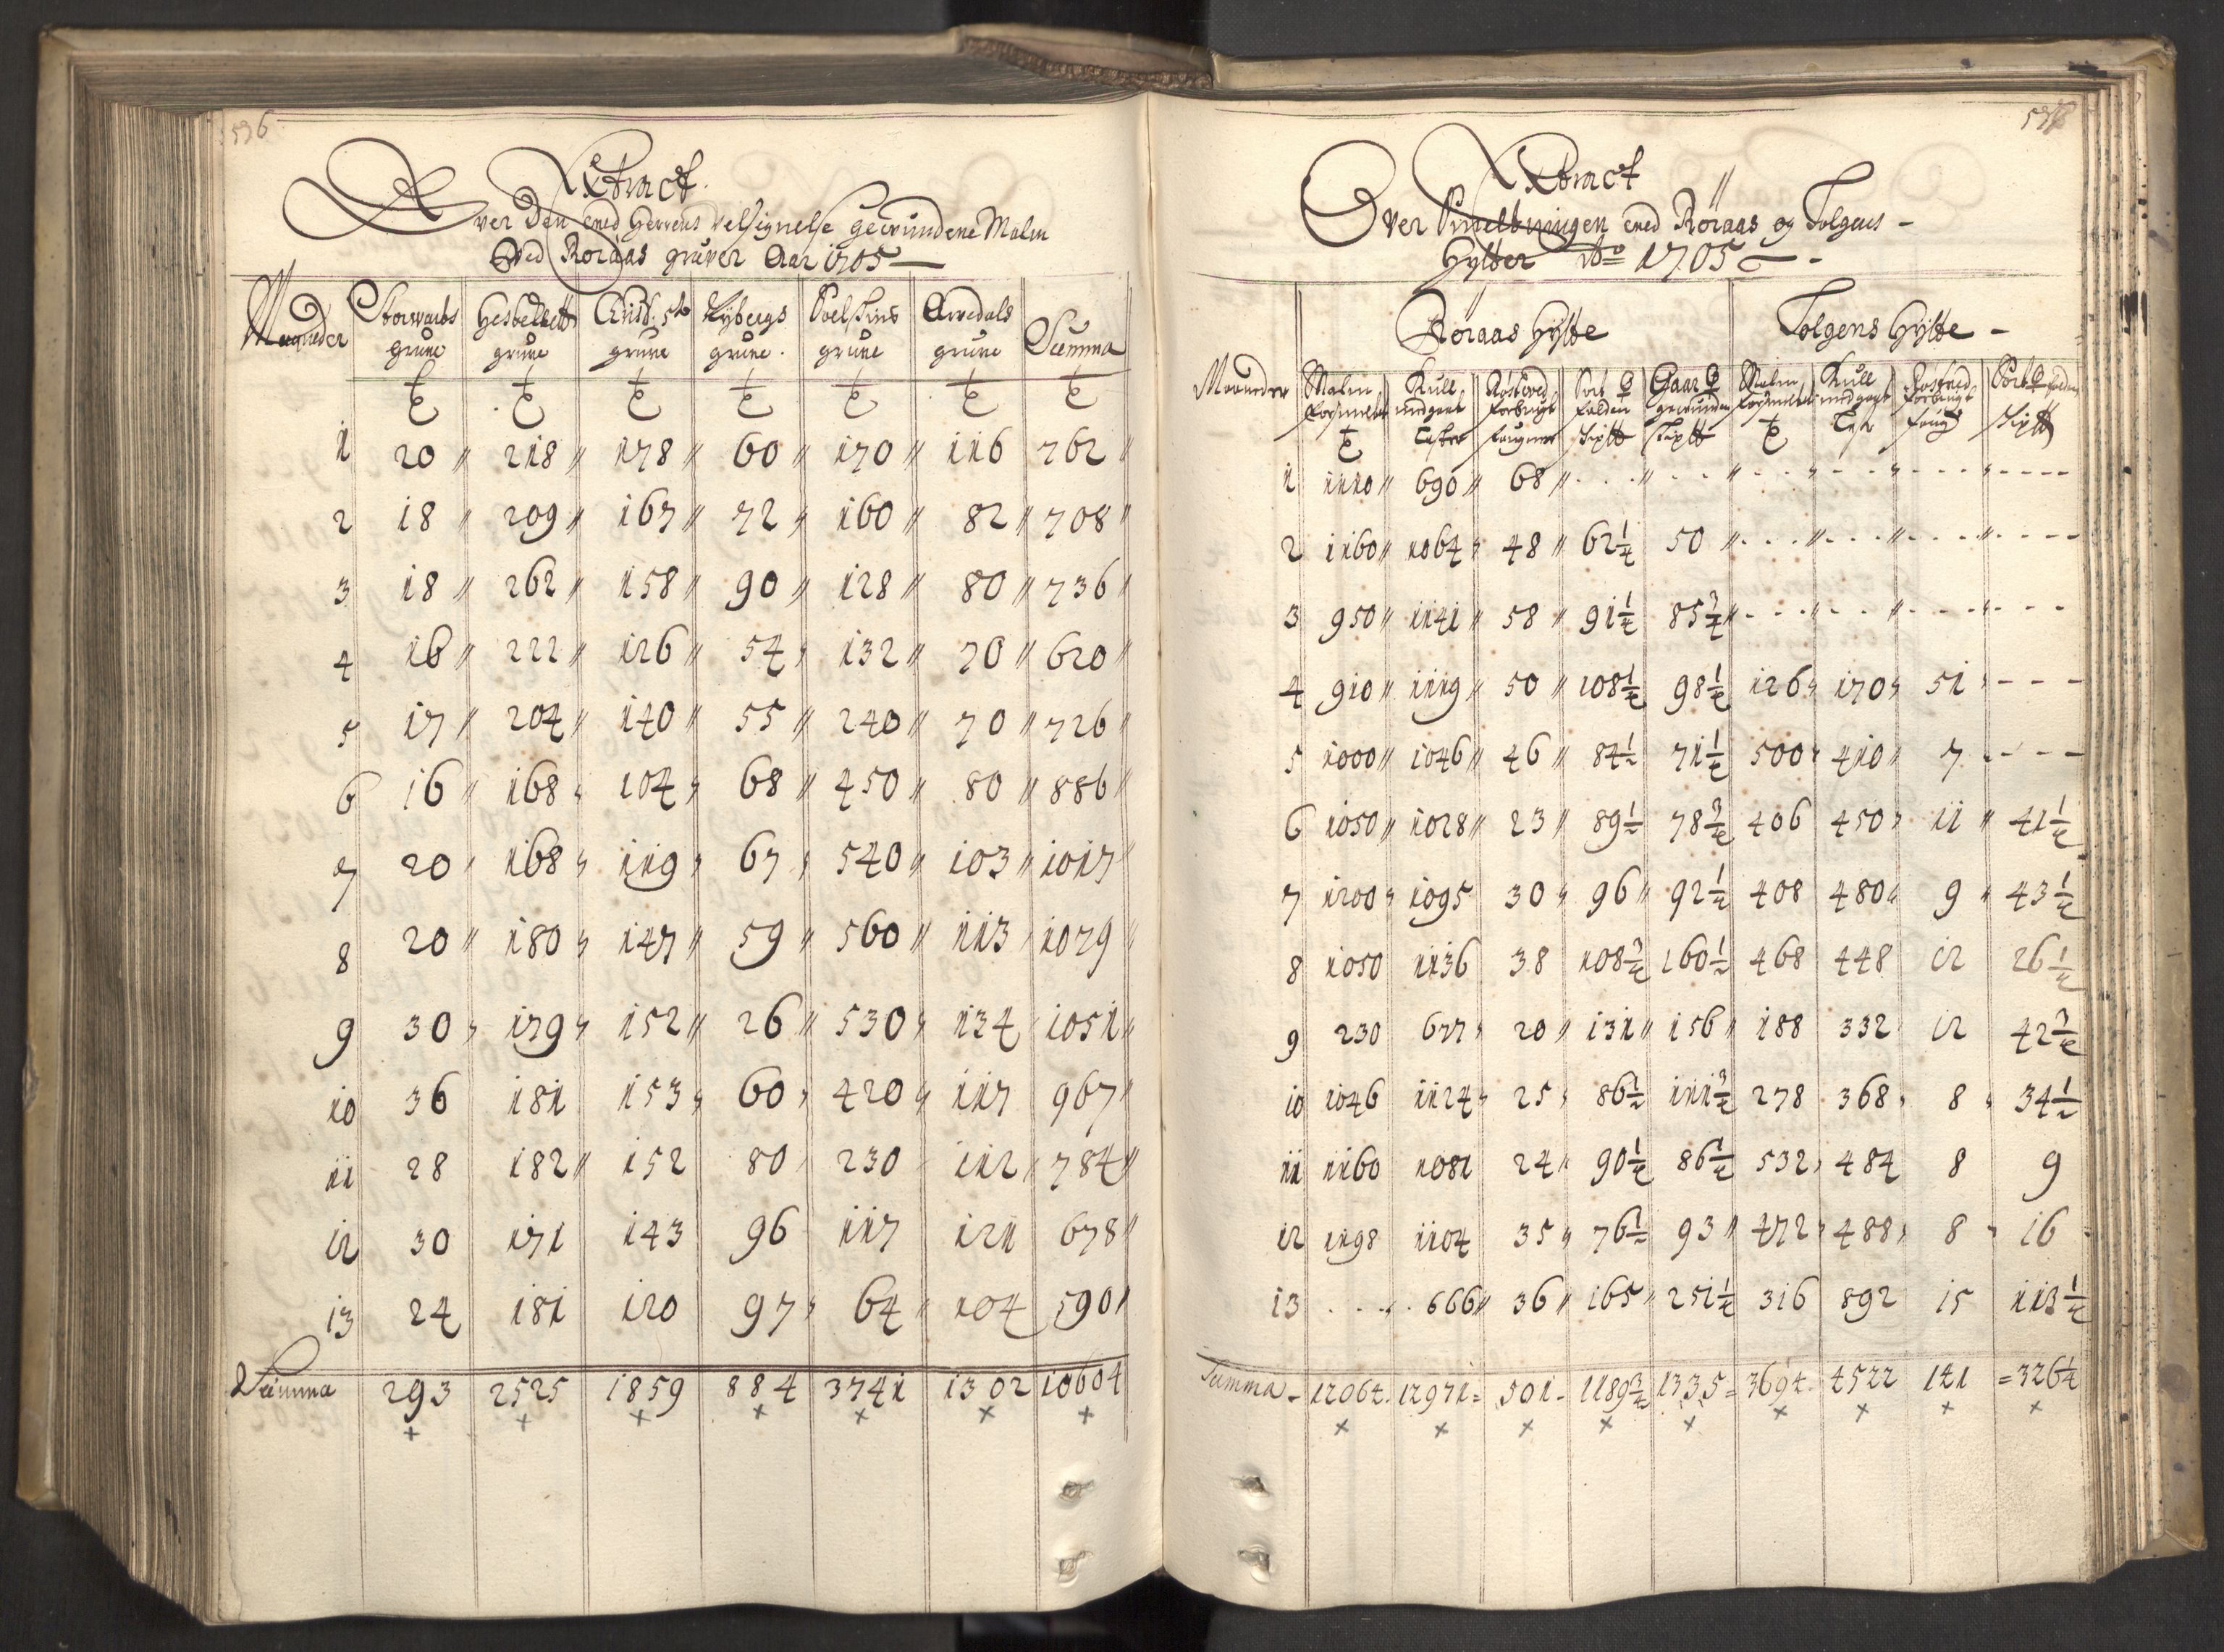 536
Extract
Over den med Herrens velsignelse gewundene Malm
Ved Röraas gruver Aar 1705
Maaneder Storwarts grune Hesteklett grune Christ. 5t grune Nybergs grune Poelssins grune Arvedals grune Summa
1 20 218 178 60 170 116 762
2 18 209 167 72 160 82 708
3 18 262 158 90 128 80 736
4 16 222 126 54 132 70 620
5 17 204 140 55 240 70 726
6 16 168 104 68 450 80 886
7 20 168 119 67 540 103 1017
8 20 180 147 59 560 113 1079
9 30 179 152 26 530 134 1051
10 36 181 153 60 420 117 967
11 28 182 152 80 230 112 784
12 30 171 143 96 117 121 678
13 24 181 120 97 64 104 590
Summa 293 2525 1859 884 3741 1302 10604
537
Extract
Over Smeltningen med Röraas og Tolgens
Hytter Ao 1705
Röraas Hytte Tolgens Hytte
Maaneder Malm Kull Gaar Malm Kull
1 1110 690 68
2 1160 1064 48 62 1/4 50
3 950 1141 58 91 1/2 85 3/4
4 910 1119 50 108 1/2 98 1/2 126 170 51
5 1000 1046 46 84 1/2 71 1/2 500 410 7
6 1050 1028 23 89 1/2 78 3/4 406 450 11 41 1/2
7 1200 1095 30 96 92 1/2 408 480 9 43 1/2
8 1050 1136 38 108 3/4 160 1/2 468 448 12 26 1/2
9 230 677 20 131 156 188 332 12 42 3/4
10 1046 1124 25 86 1/2 111 3/4 278 368 8 34 1/2
11 1160 1081 24 90 1/2 86 1/2 532 484 8 9
12 1198 1104 35 76 1/2 93 472 488 8 16
13 666 36 165 251 1/4 316 892 15 113 1/2
Summa 12064 12971 501 1189 3/4 1335 3694 4522 141 326 1/4